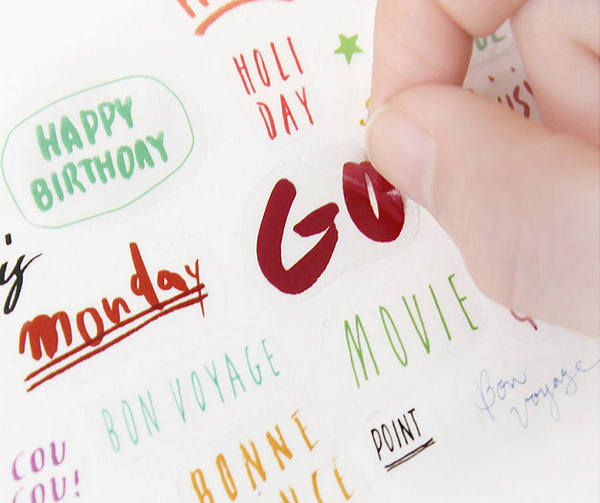 HOLI
DAY
HAPPY
BIRTHDAY
GO
monday
MOVIE
BON VOYAGE
Bon
voyage
POINT
BONNE
COU
COU!